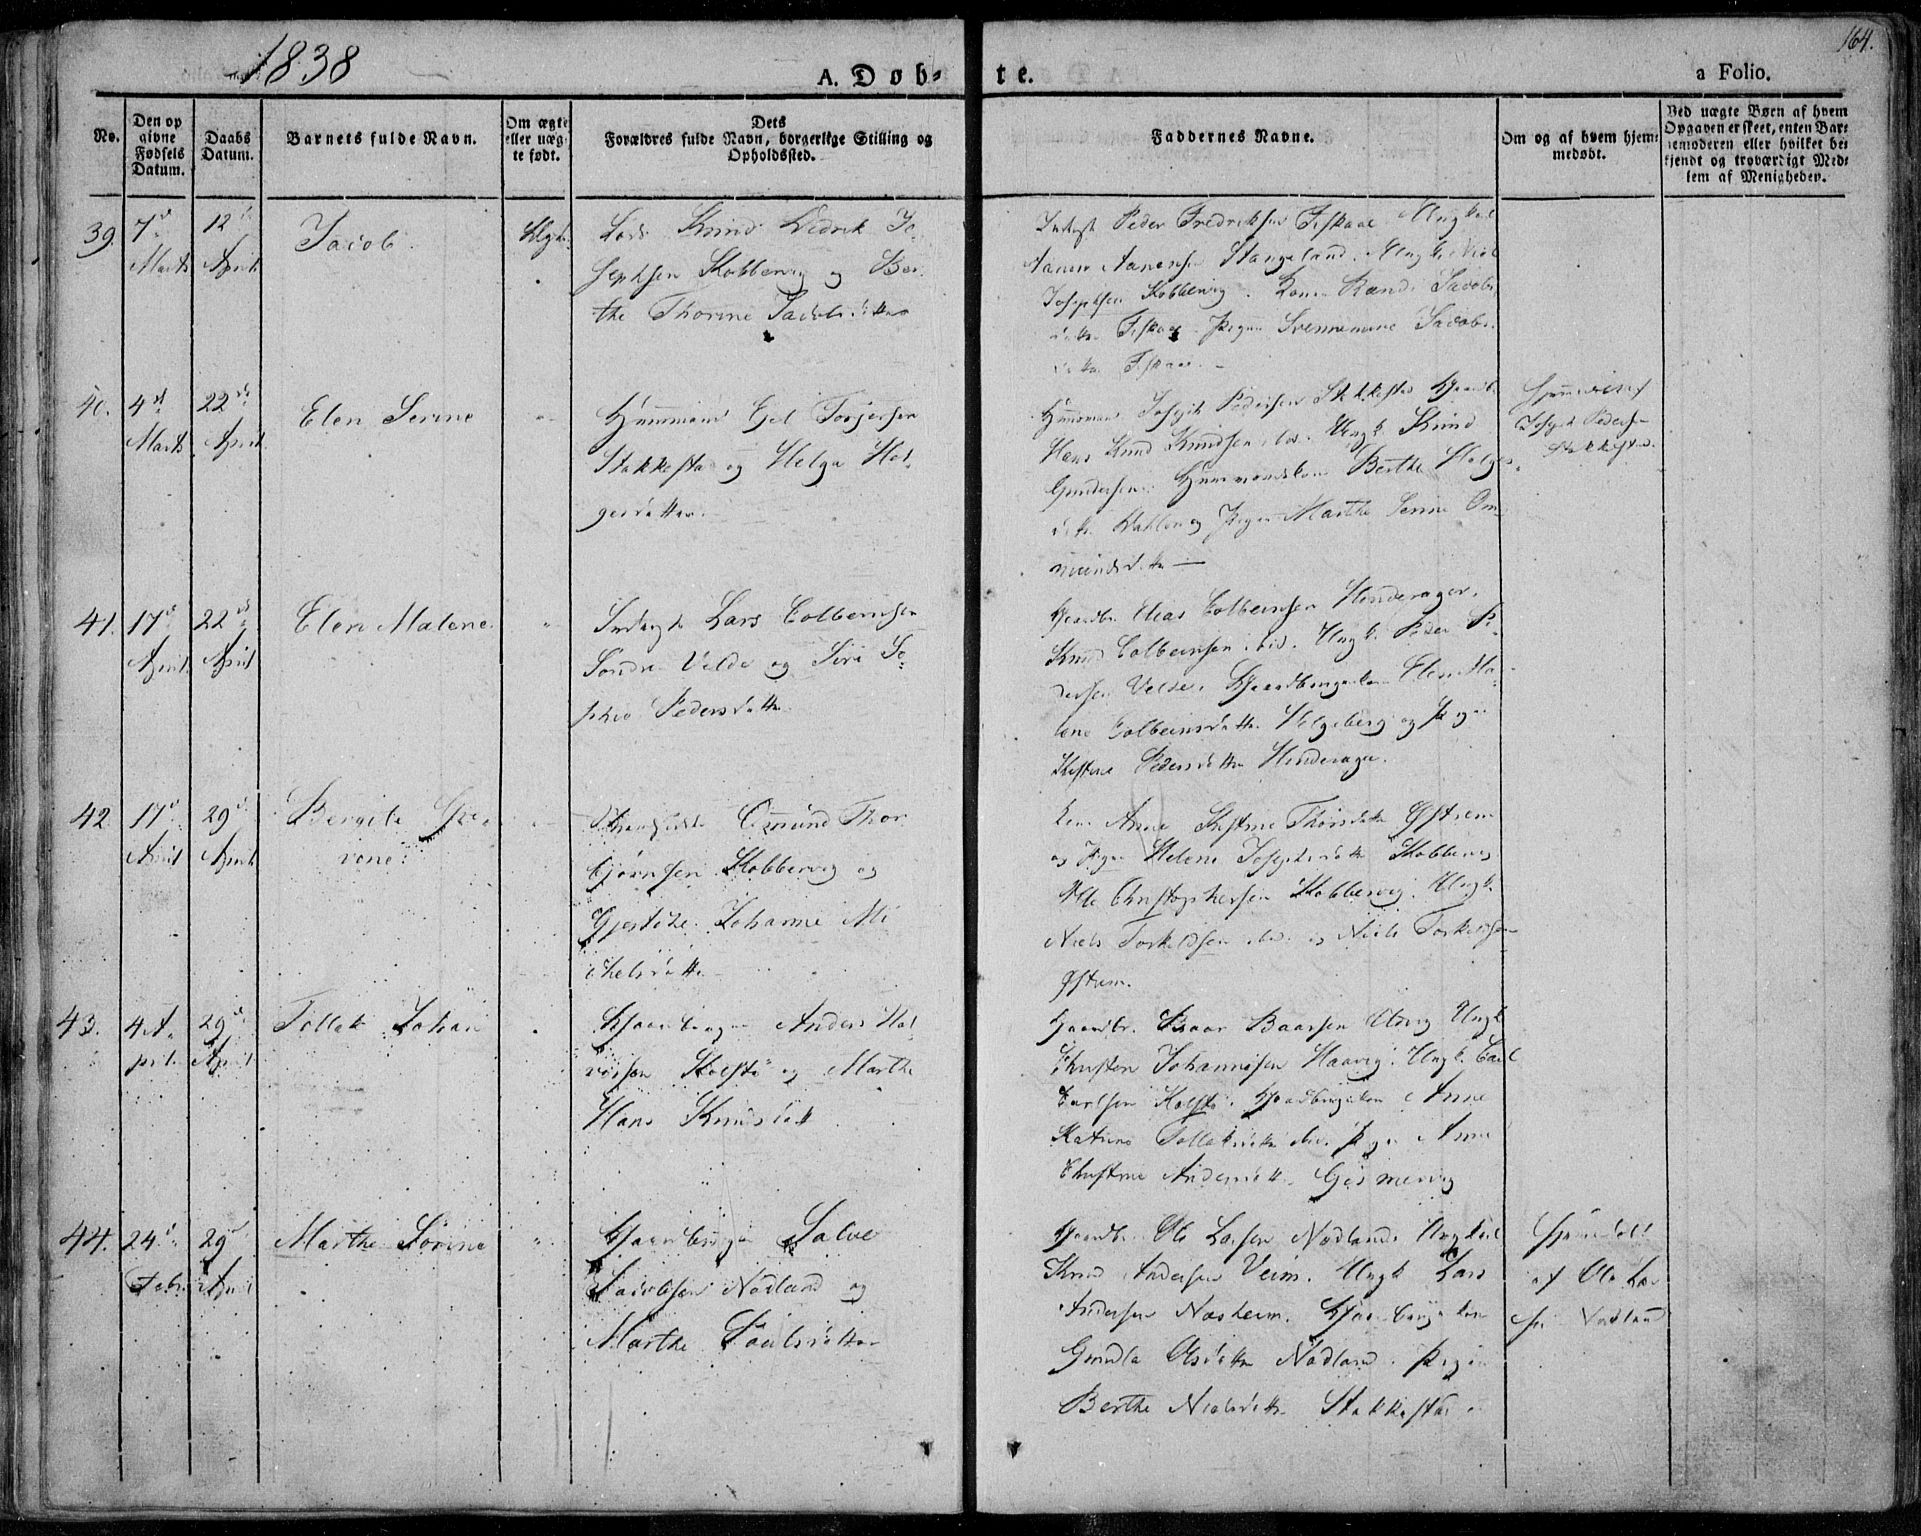 1838
164.
A. Døb-
te.
a Folio.
No.
Den op
givne
Fødsels
Datum.
Daabs
Datum.
Barnets fulde Navn.
Om ægte
eller uæg-
te født.
Dets
Forældres fulde Navn, borgerlige Stilling og
Opholdssted.
Faddernes Navne.
Om og af hvem hjem-
medøbt.
Ved uægte Børn af hvem
Opgaven er skeet, enten Bar-
nemoderen eller hvilket be-
kjendt og troværdigt Med-
lem af Menigheden.
39.
7de
Marts
12te
April
Jacob
Ægte
Knud Didrik Jo-
sephsen Kobbervig og Ber-
the Thorine Jacobsdatter
Peder Fredriksen Fiskaae Ungkal
Aanen Aanensen Stangeland. Ungk. Niel
Josephsen Kobbervig. Kone Jacobs
datter Fiskaae Pigen Svennemine Jacobs
datter Fiskaae
40.
4de
Marts
22de
April
Elen Serine
Huusmand Gjel Torgersen
Stakkestad og Helga Hol-
gersdatter
Huusmand Joseph Pedersen Stakkestad Gaardb.
Hans Knud Knudsen ibd. Ungk. Knud
Gundersen. Huusmandskone Berthe Helges
datter og Pigen Marthe Serine Om-
mundsdatter
Joseph Peders-
Stakkestad
41.
17de
April
22de
April
Elen Malene
Lars Colbeinsen
Søndre Velde og Siri Jo-
Pedersdatter
Gaardbr. Elias Colbeinsen Hinderager.
Knud Colbeinsen ibd. Ungk. Peder Pe-
dersen Velde. Gaardbrugerkone Elen Ma-
lene Colbeinsdatter Helgeberg og Pigen
Kistine Pedersdatter Hinderager.
42.
17de
April
29de
April
Bergite Se-
rene
Strandsidder Omund Thor
bjørnsen Kobbervig og
Gjertine Johanne Mi
chelsdatter
Kone Anne Kistine Thorsdatter Østrem
og Pigen Helene Josephsdatter Kobbervig
Ole Christophersen Kobbervig. Ungk.
Niels Torkeldsen ibd. og Niels Torkeldsen
Østrem.
43.
4 A-
pril
29de
April
Tollak Johan
Gaardbruger Anders Hal-
vorsen Kolstø og Marthe
Hans Knudsdatt
Gaardbr. Baar Baarsen Ungk
Christen Johannesen Haavig. Ungk. Carl
Carlsen Kolstø. Gaardbrugerkone Anne
Katrine Tollaksdatter ibd. Pigen Anne
Christine Andersdatt.
44.
24de
Febr
29de
April
Marthe Serine
Gaardbruger Salve
Jacobsen Nodland og
Marthe Paulsdatter
Gaardbr. Ole Larsen Nodland. Ungkarl
Knud Andersen Veim. Ungk. Lars
Andersen Nosheim. Gaardbrugerkone
Gundla Olsdatter Nodland. Pigen
Berthe Nielsdatter Stakkestad
Hjemmedøbt
af Ole Lar
sen Nodland